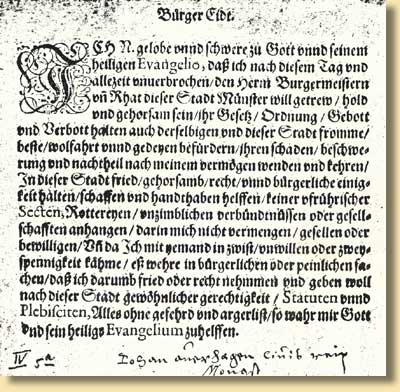 Bürger Eidt.
ICH N. gelobe vnnd schwere zu Gott vnnd seinem
heiligen Evangelio, daß ich nach diesem Tag vnd
allezeit vnuerbrochen/ den Herrn Burgermeistern
vñ Rhat dieser Stadt Münster will getrew/ hold
vnd gehorsam sein/ ihr Gesetz/ Ordnung/ Gebott
vnd Verbott halten auch derselbigen vnd dieser Stadt fromme/
beste/ wolfahrt vnnd gedeyen befürdern/ ihren schaden/ beschwe-
rung vnd nachtheil nach meinem vermögen wenden vnd kehren/
In dieser Stadt fried/ gehorsamb/ recht/ vnnd bürgerliche einig-
keit halten/ schaffen vnd handthaben helffen/ keiner vfrührischer
Secten, Rottereyen/ vnzimblichen verbündtnüssen oder gesell-
schafften anhangen/ darin mich nicht vermengen/ gesellen oder
bewilligen/ Vñ da Ich mit yemand in zwist/ vnwillen oder zwey-
spennigkeit kähme/ eß wehre in bürgerlichen oder peinlichen sa-
chen/ daß ich darumb fried oder recht nehmmen vnd geben woll
nach dieser Stadt gewöhnlicher gerechtigkeit/ Statuten vnnd
Plebisciten, Alles ohne gefehrd vnd argerlist/ so wahr mir Gott
vnd sein heiligs Evangelium zuhelffen.
IV 5a
Johan civis